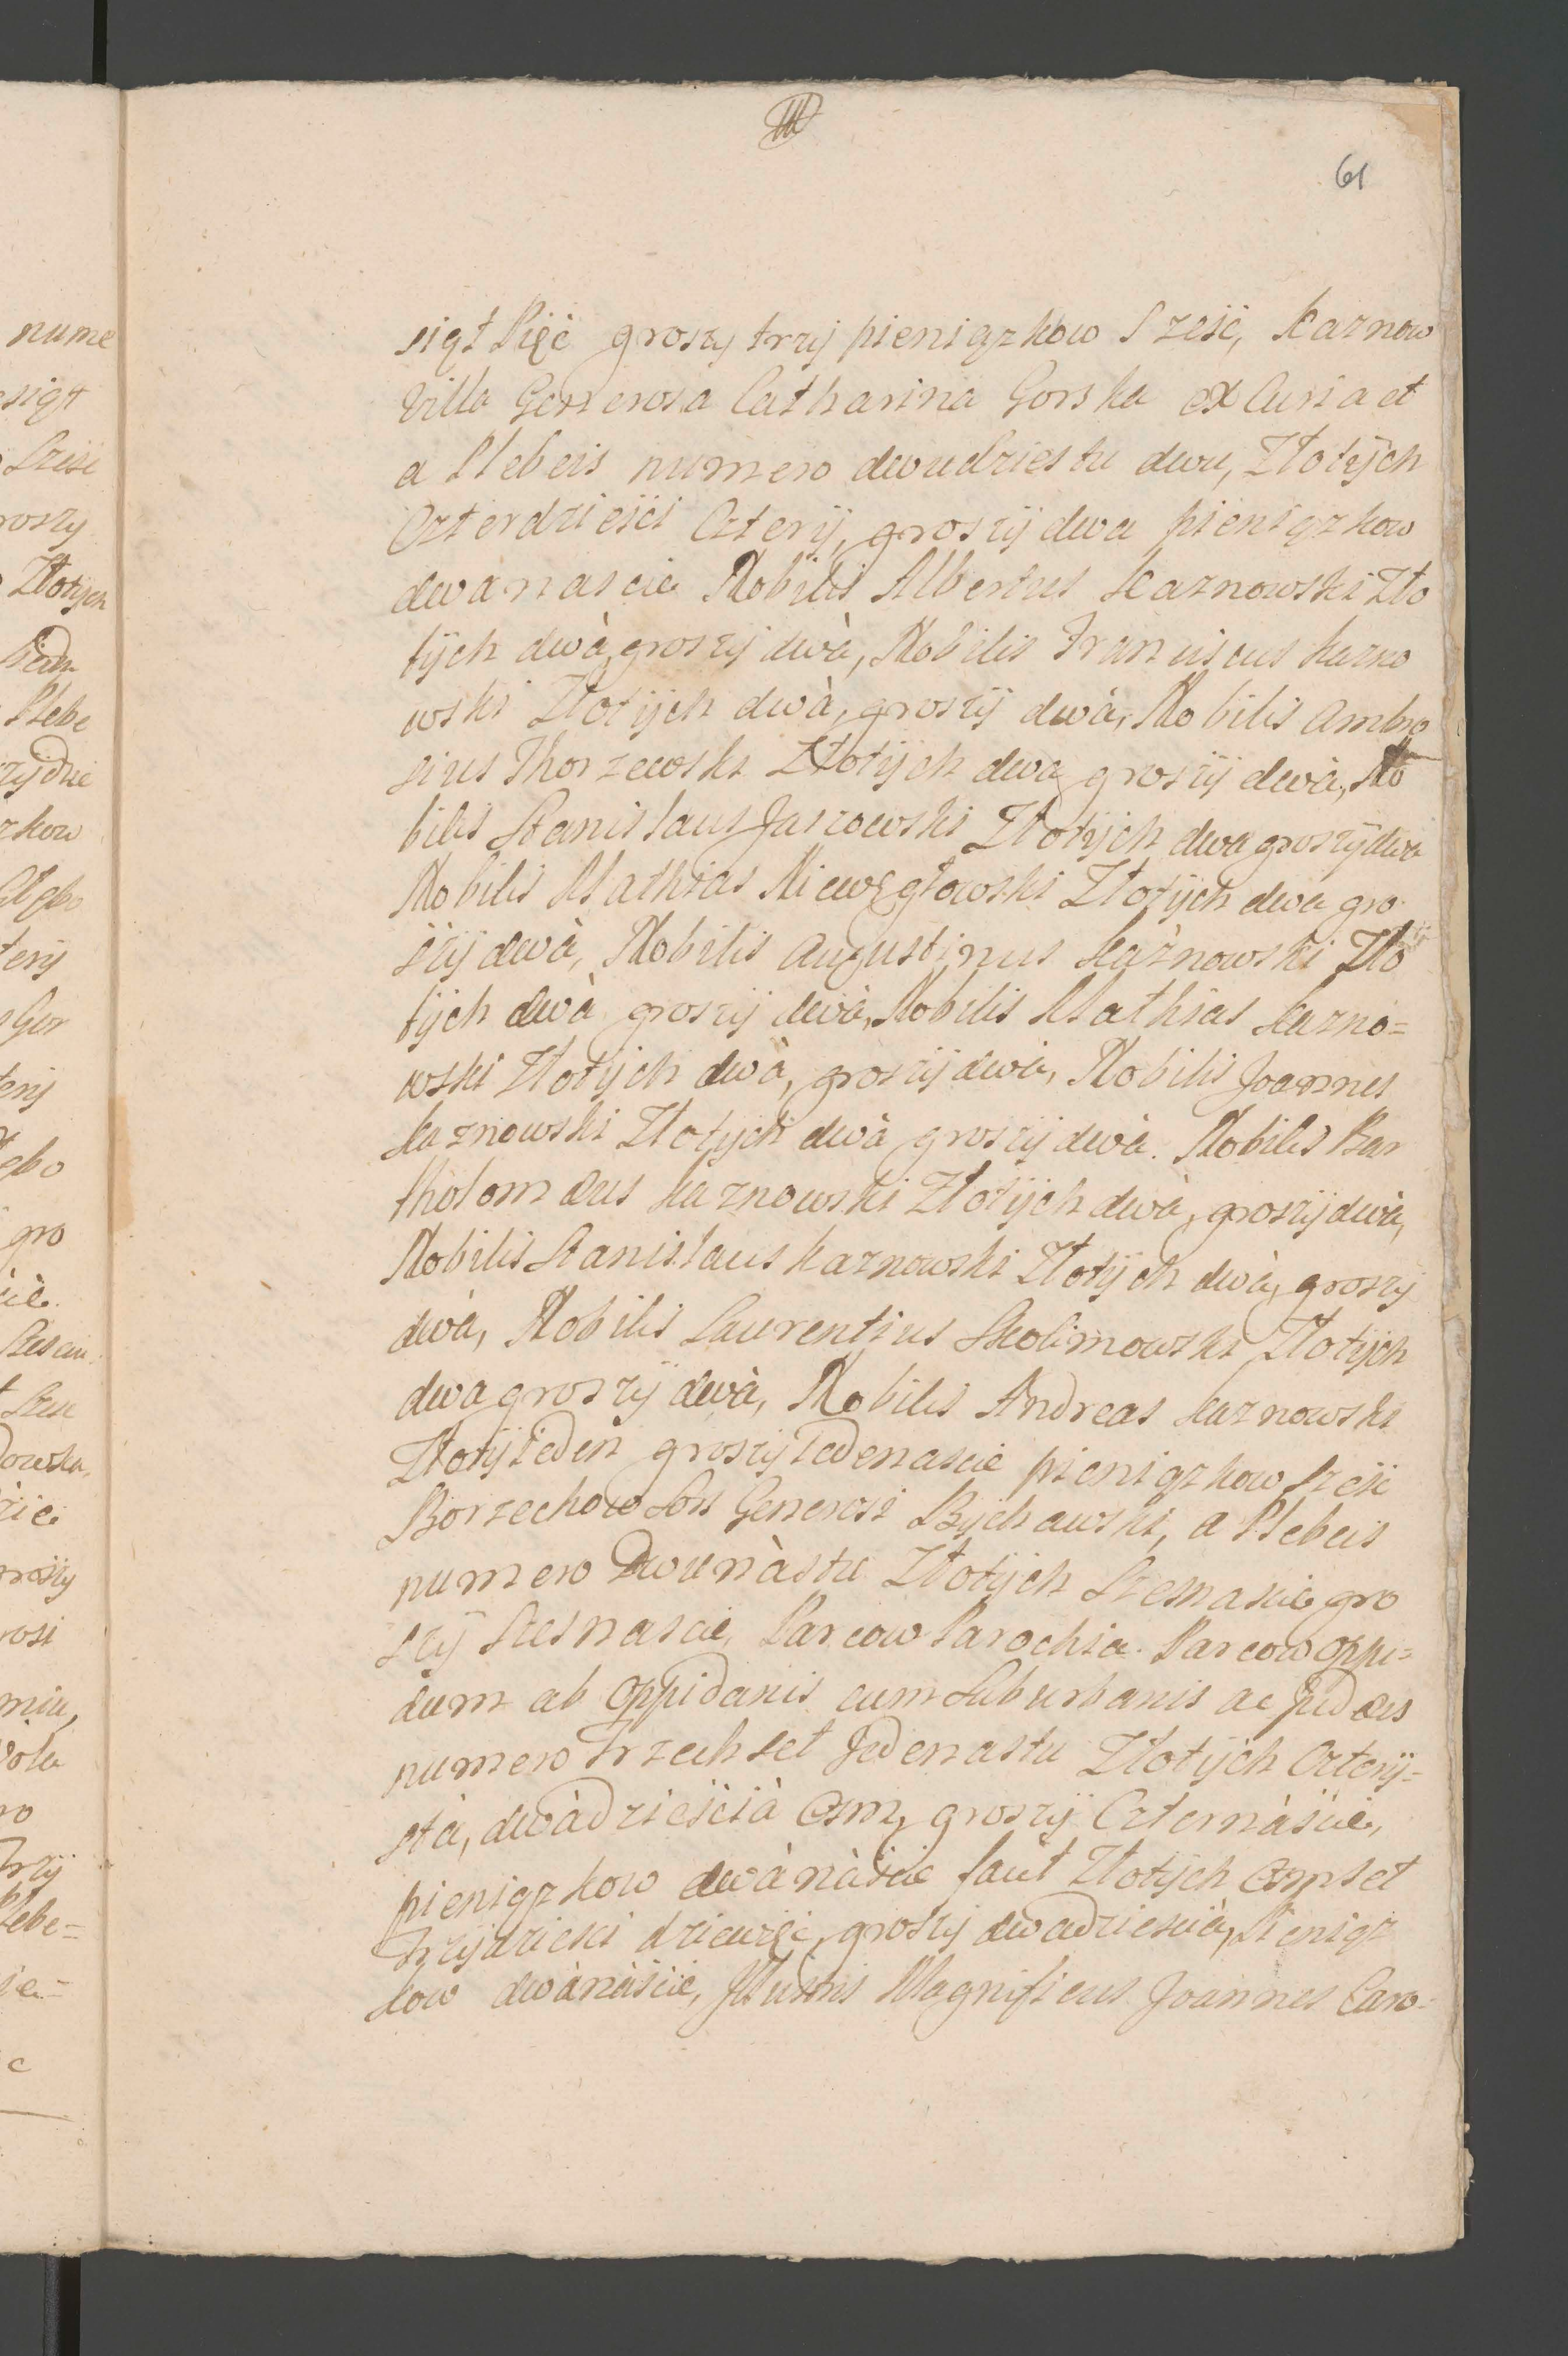 61
nume
siąt Pięć groszy trzÿ pieniązkow Sześć, Kaznow
Villa Generosa Catharina Gorska ex Curia et
a Plebeis numero dwudziestu dwu, Złotÿch
Czterdzieści Czterÿ, groszÿ dwa pieniązkow
dwanascie Nobilis Albertus Kaznowski Zło
tÿch dwà groszÿ dwà, Nobilis Franciscus Kazno
wski Złotÿch dwà, groszÿ dwà, Nobilis Ambro
sius Thorzewski Złotÿch dwa groszÿ dwà, No
bilis Stanislaus Jaszowski Złotÿch dwa groszÿ dwa
Nobilis Mathias Niewęgłowski Złotÿch dwa gro
szÿ dwà, Nobilis Augustinus Kaznowski Zło
tÿch dwà groszÿ dwà, Nobilis Mathias Kazno=
wski Złotÿch dwà, groszÿ dwà, Nobilis Joannes
Kaznowski Złotÿch dwà groszÿ dwà. Nobilis Bar
tholomæus Kaznowski Złotÿch dwà, groszÿ dwà,
Nobilis Stanislaus Kaznowski Złotÿch dwà, groszÿ
dwà, Nobilis Laurentius Skolimowski Złotÿch
dwa groszÿ dwà, Nobilis Andreas Kaznowski
Złotÿ ieden groszÿ Iedenascie pieniązkow sześć
Borzechow Sors Generosi Bÿchawski, a Plebeis
numero Dwunàstu Złotÿch Szesnascie gro
szÿ szesnascie, Parcow Parochia. Parcow oppi=
dum ab oppidanis cum Suburbanis ac Judæis
numero Trzechset Jedenastu Złotÿch Czterÿ=
sta, dwàdzieścià Osm, groszÿ Czternàście,
pieniązkow dwànàście facit Złotÿch Osmset
Trzÿdzieści dziewięć, groszÿ dwadziescià, Pieniąz
kow dwànàście, Illustris Magnificus Joannes Caro=